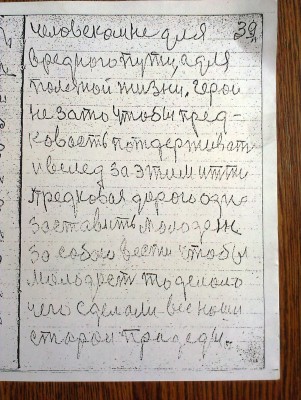 39
человеком не для
вредного пути, а для
полезной жизни, герой
не зато чтобы пред-
коваеть поддерживать
и вслед за этим итти
предковая дорога озна
заставить молодеж
за собой вести чтобы
молодость то делало
чего сделали все наши
старои прадеди.